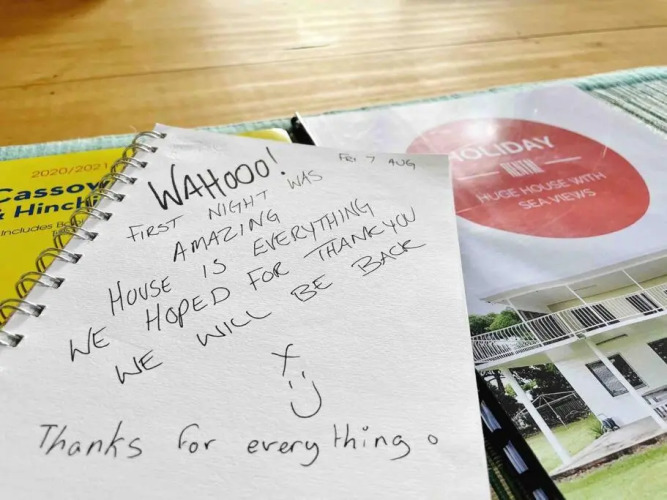 2020/2021
Cassow
& Hinchi
WAHOOO!
FRI 7 AUG
FIRST NIGHT WAS
AMAZING
HOUSE IS EVERYTHING
WE HOPED FOR THANKYOU
WE WILL BE BACK
X
Thanks for everything
HOLIDAY
HUGE HOUSE WITH
SEA VIEWS